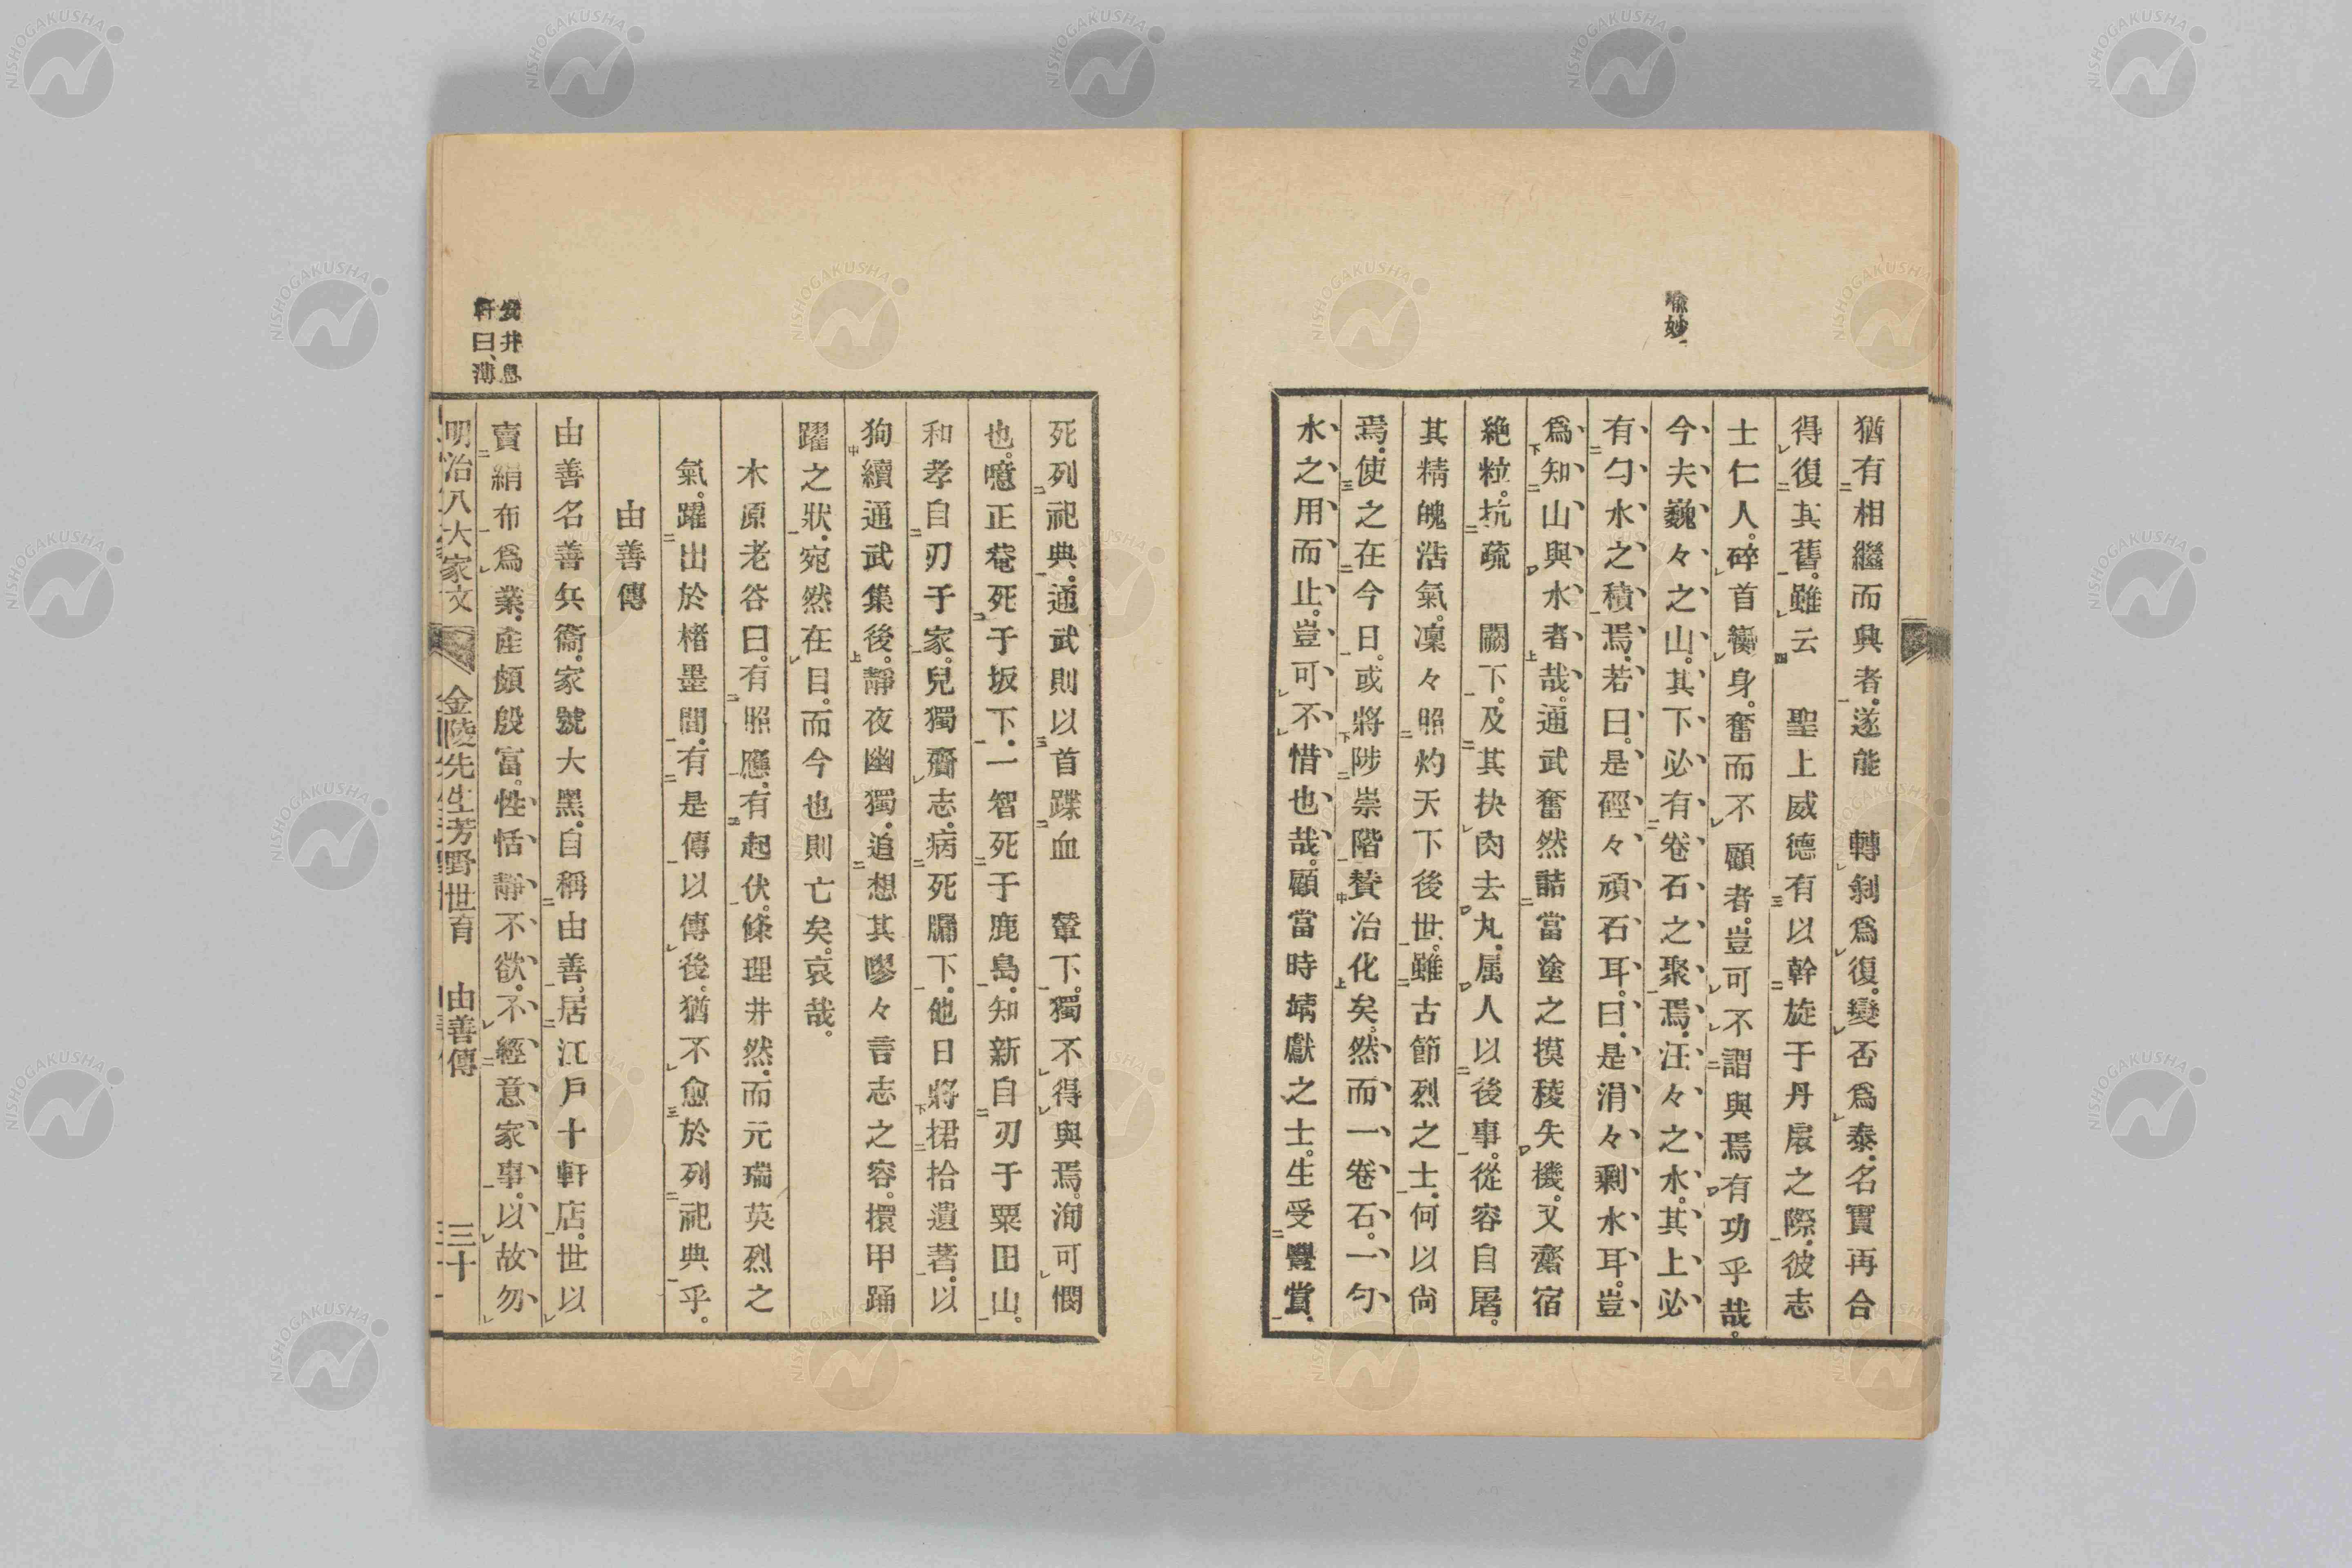 喩妙、
猶有相繼而興者。遂能　轉剝爲復。變否爲泰。名實再合
得復其舊。雖云　聖上威德有以幹旋于丹扆之際。彼志
士仁人。碎首衊身。奮而不顧者。豈可不謂與焉有功乎哉。
今夫巍々之山。其下必有卷石之聚焉。汪々之水。其上必
有勺水之積焉。若曰。是硜々頑石耳。曰。是涓々剩水耳。豈
爲知山與水者哉。通武奮然詰當塗之摸稜失機。又齎宿
絶粒。抗疏　闕下。及其抉肉去丸。属人以後事。從容自屠。
其精魄浩氣。凜々照灼天下後世。雖古節烈之士。何以尙
焉。使之在今日。或將陟崇階賛治化矣。然而一卷石。一勺
水之用而止。豈可不惜也哉。顧當時靖獻之士。生受釁賞。
死列祀典。通武則以首蹀血　輦下。獨不得與焉。洵可憫
也。噫正菴死于坂下。一智死于鹿島。知新自刃于粟田山。
和孝自刃于家。兒獨齎志。病死牖下。他日將捃拾遺著。以
狗續通武集後。靜夜幽獨。追想其嘐々言志之容。擐甲踊
躍之狀。宛然在目。而今也則亡矣。哀哉。
木原老谷曰。有照應。有起伏。條理井然。而元瑞英烈之
氣。躍出於楮墨間。有是傳以傳後。猶不愈於列祀典乎。
由善傳
由善名善兵衞。家號大黑。自稱由善。居江戶十軒店。世以
賣絹布爲業。產頗殷富。性恬靜不欲。不經意家事。以故勿
安井息
軒曰、薄
明治八大家文　金陵先生芳野世育　由善傳　三十一